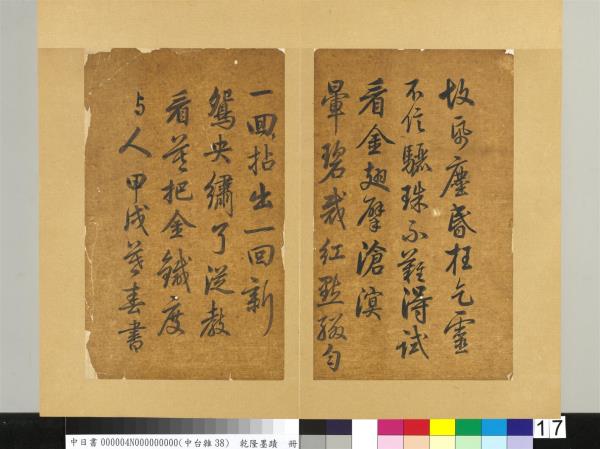 故帋塵昏枉乞靈
不信驪珠不難得試
看金翅擘滄溟
暈碧裁紅點綴勻
一回拈出一回新
鴛央繡了從教
看莫把金鍼度
与人甲戌暮春書
中日書 000004N000000000(中台雜38) 乾隆墨蹟 冊
17